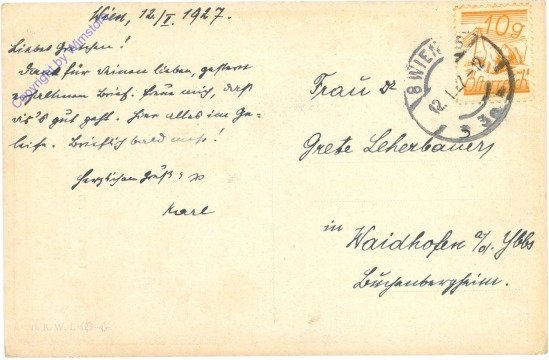 Wien, 12./I. 1927.
Liebes Gretchen!
Dank für deinen lieben, gestern
erhaltenen Brief. Freue mich, daß
dir's gut geht. Hier alles im Ge-
leise. Brieflich bald mehr!
Herzlichen Gruß
Karl
Copyright by Wimstor
10g
8 WIEN
12.I.27
Frau Dr
Grete Leherbauer
in
Waidhofen a/d. Ybbs
Buchenbergheim.